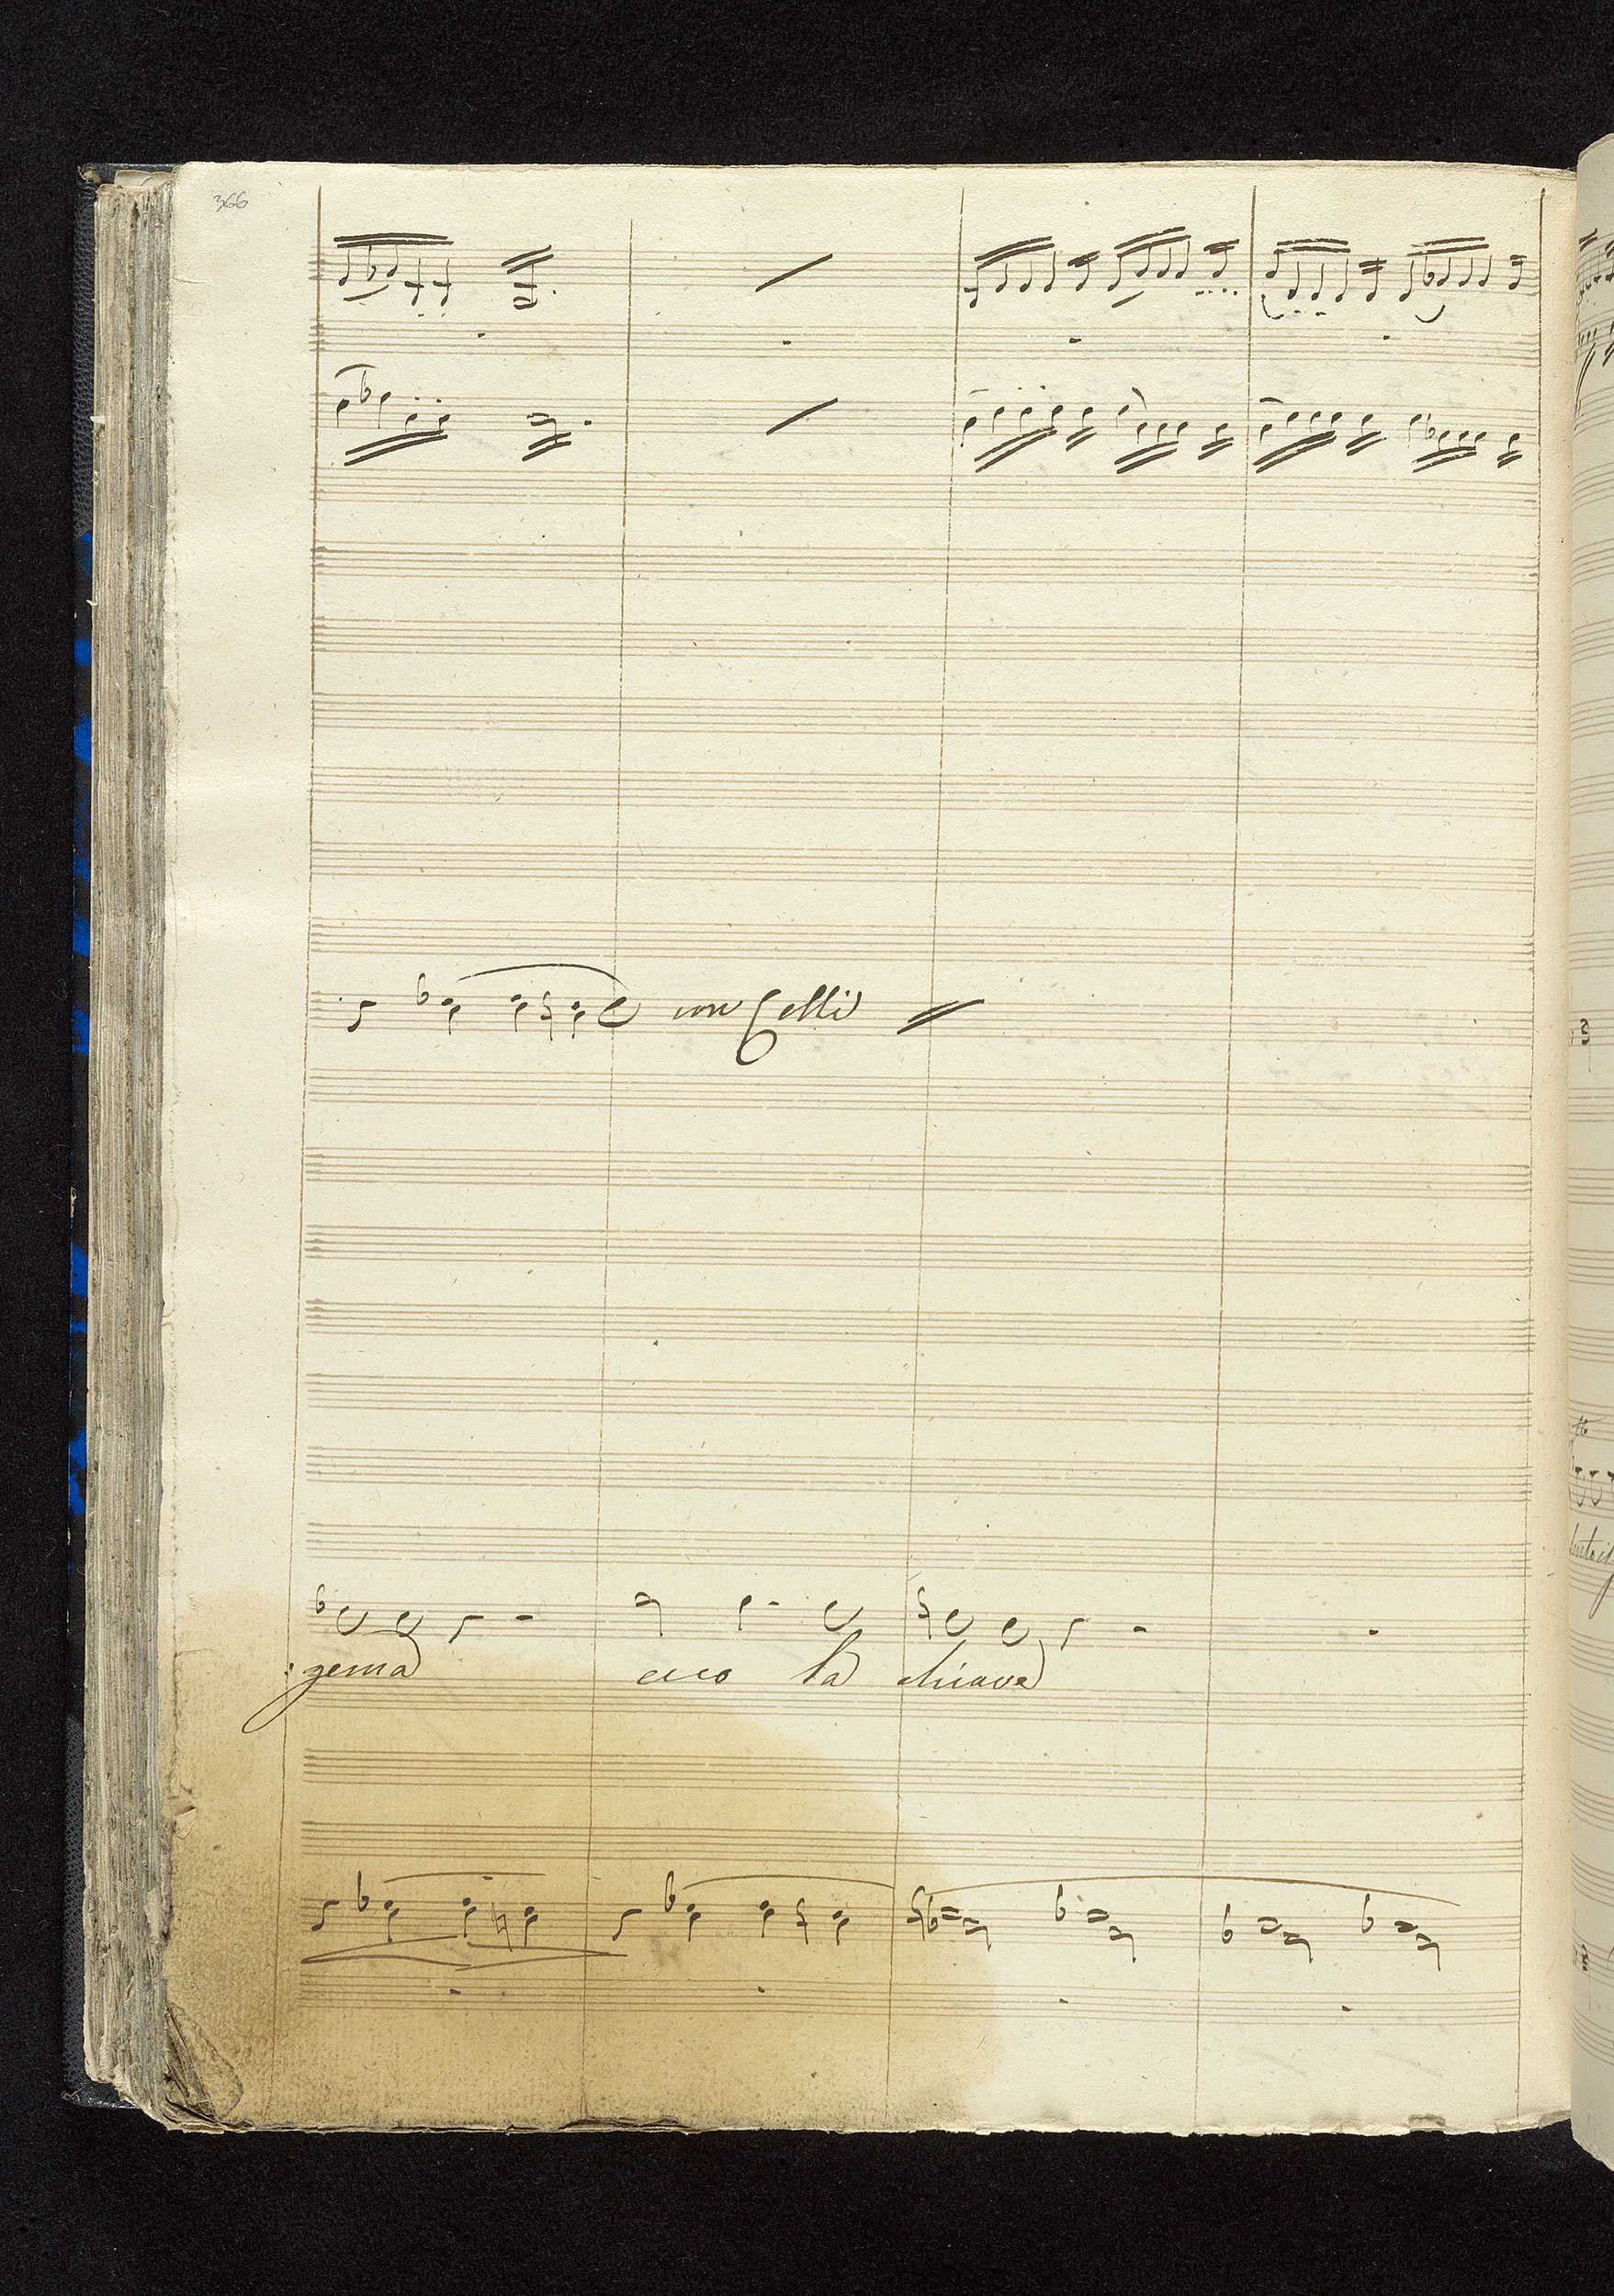 366
con Celli
:gema ecco la chiave